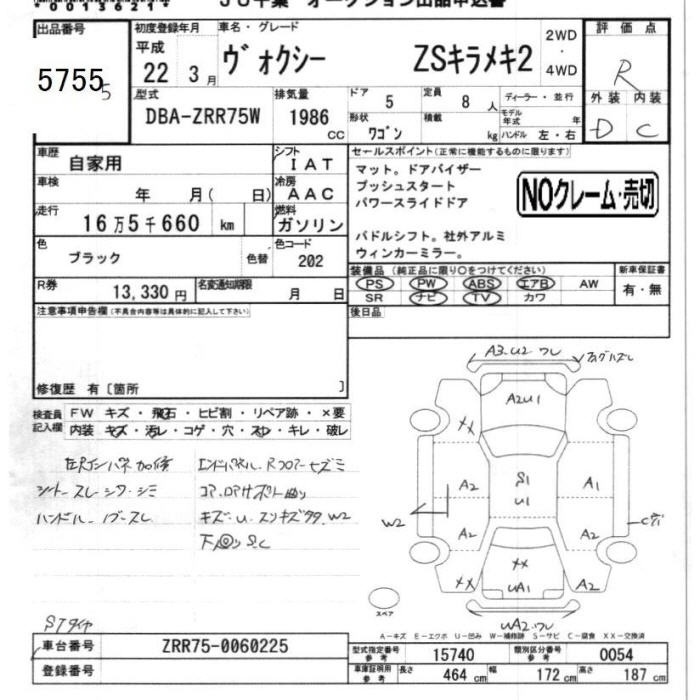 出品番号
5755
5
初度登録年月
平成
22 3 月
車名・グレード
ヴォクシー ZSキラメキ2
2WD
・
4WD
評価点
R
外装 内装
D C
型式
DBA-ZRR75W
排気量
1986 CC
ドア 5
定員 8 人
ディーラー・並行
形状 ワゴン
積載 kg
モデル年式 年
ハンドル 左・右
車歴 自家用
シフト IAT
車検 年 月( 日)
冷房 AAC
走行 16万5千660 km
燃料 ガソリン
色 ブラック 色替
色コード 202
R券 13,330 円
名変通知期限 月 日
セールスポイント(正常に機能するものに限ります)
マット。ドアバイザー
プッシュスタート
パワースライドドア
パドルシフト。社外アルミ
ウィンカーミラー。
NOクレーム・売切
装備品(純正品に限り○をつけてください)
PS PW ABS エアB AW
SR ナビ TV カワ
新車保証書
有・無
後日品
注意事項申告欄(不具合内容等は具体的に記入して下さい)
修復歴 有〔箇所 〕
検査員記入欄
FW キズ・飛石・ヒビ割・リペア跡・×要
内装 キズ・汚レ・コゲ・穴・スレ・キレ・破レ
シートスレ・シワ・シミ
ハンドル
キズ・U・スリキズ多々 W2
STタイヤ
A3.U2 ワレ
A2U1
XX
A2
S1
U1
A1
W2
A2
A2
XX
XX
UA1
A2
UA2.ワレ
スペア
A-キズ E-エクボ U-凹み W-補修跡 S-サビ C-腐食 XX-交換済
車台番号 ZRR75-0060225
登録番号
型式指定番号 参考 15740
類別区分番号 参考 0054
車庫証明用 参考 長さ 464 cm 幅 172 cm 高さ 187 cm